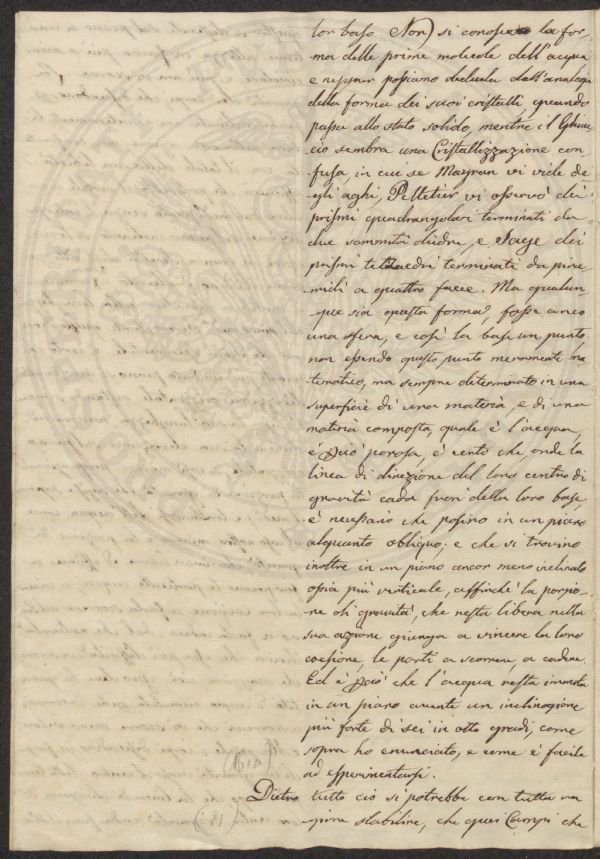 lor base Non si conosce la for-
ma delle prime molecole dell'acqua
e neppur possiamo dedurla dall'analogia
della forma dei suoi cristalli, quando
passa allo stato solido, mentre il Ghiac
cio sembra una Cristallizzazione con
fusa, in cui se Mayran vi vide de
gli aghi, Pelletier vi osservò dei
prismi quadrangolari terminati da
due sommità diedre, e Sage dei
prismi tetraedri terminati da pira
midi a quattro facce. Ma qualun-
que sia questa forma, fosse anco
una sfera, e così la base un punto
non essendo questo punto meramente ma
tematico, ma sempre determinato in una
superficie di una materia, e di una
materia composta, quale è l'acqua,
è perciò porosa, è certo che, onde la
linea di direzione del loro centro di
gravità cada fuori della loro base,
è necessario che posino in un piano
alquanto obliquo; e che si trovino
inoltre in un piano ancor meno inclinato
ossia più verticale, affinchè la porzio-
ne di gravità, che resta libera nella
sua azione giunga a vincere la loro
coesione, le porti a scorrere, a cadere.
Ed è perciò che l'acqua resta immota
in un piano avente un inclinazione
più forte di sei in otto gradi, come
sopra ho enunciato, e come è facile
ad esperimentarsi.
Dietro tutto ciò si potrebbe con tutta ra
gione stabilire, che quei Campi che